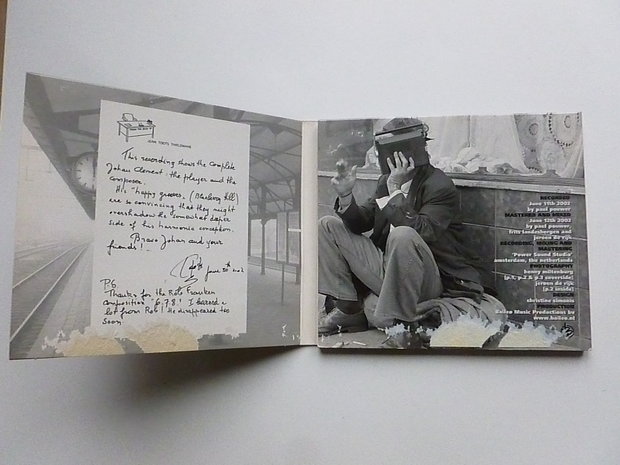 JEAN "TOOTS" THIELEMANS
This recording shows the complete
Johan Clement the player and the
composer.
His "happy grooves" (Blueberry Hill)
are so convincing that they might
overshadow the somewhat darker
side of his harmonic conception.
Bravo Johan and your
friends!..
June 30th 2002
PS
Thanks for the Rob Franken
composition "6.7.8.! I learned a
lot from Rob! He disappeared too
soon.
RECORDED
June 11th 2002
by paul pouwer
MASTERED AND MIXED
June 12th 2002
by paul pouwer,
frits landesbergen and
jeroen de rijk
RECORDING, MIXING AND
MASTERING
'Power Sound Studio'
amsterdam, the netherlands
PHOTOGRAPHY
henny miltenburg
jeroen de rijk
(p.2 inside)
christine simonis
Baileo Music Productions bv
www.baileo.nl